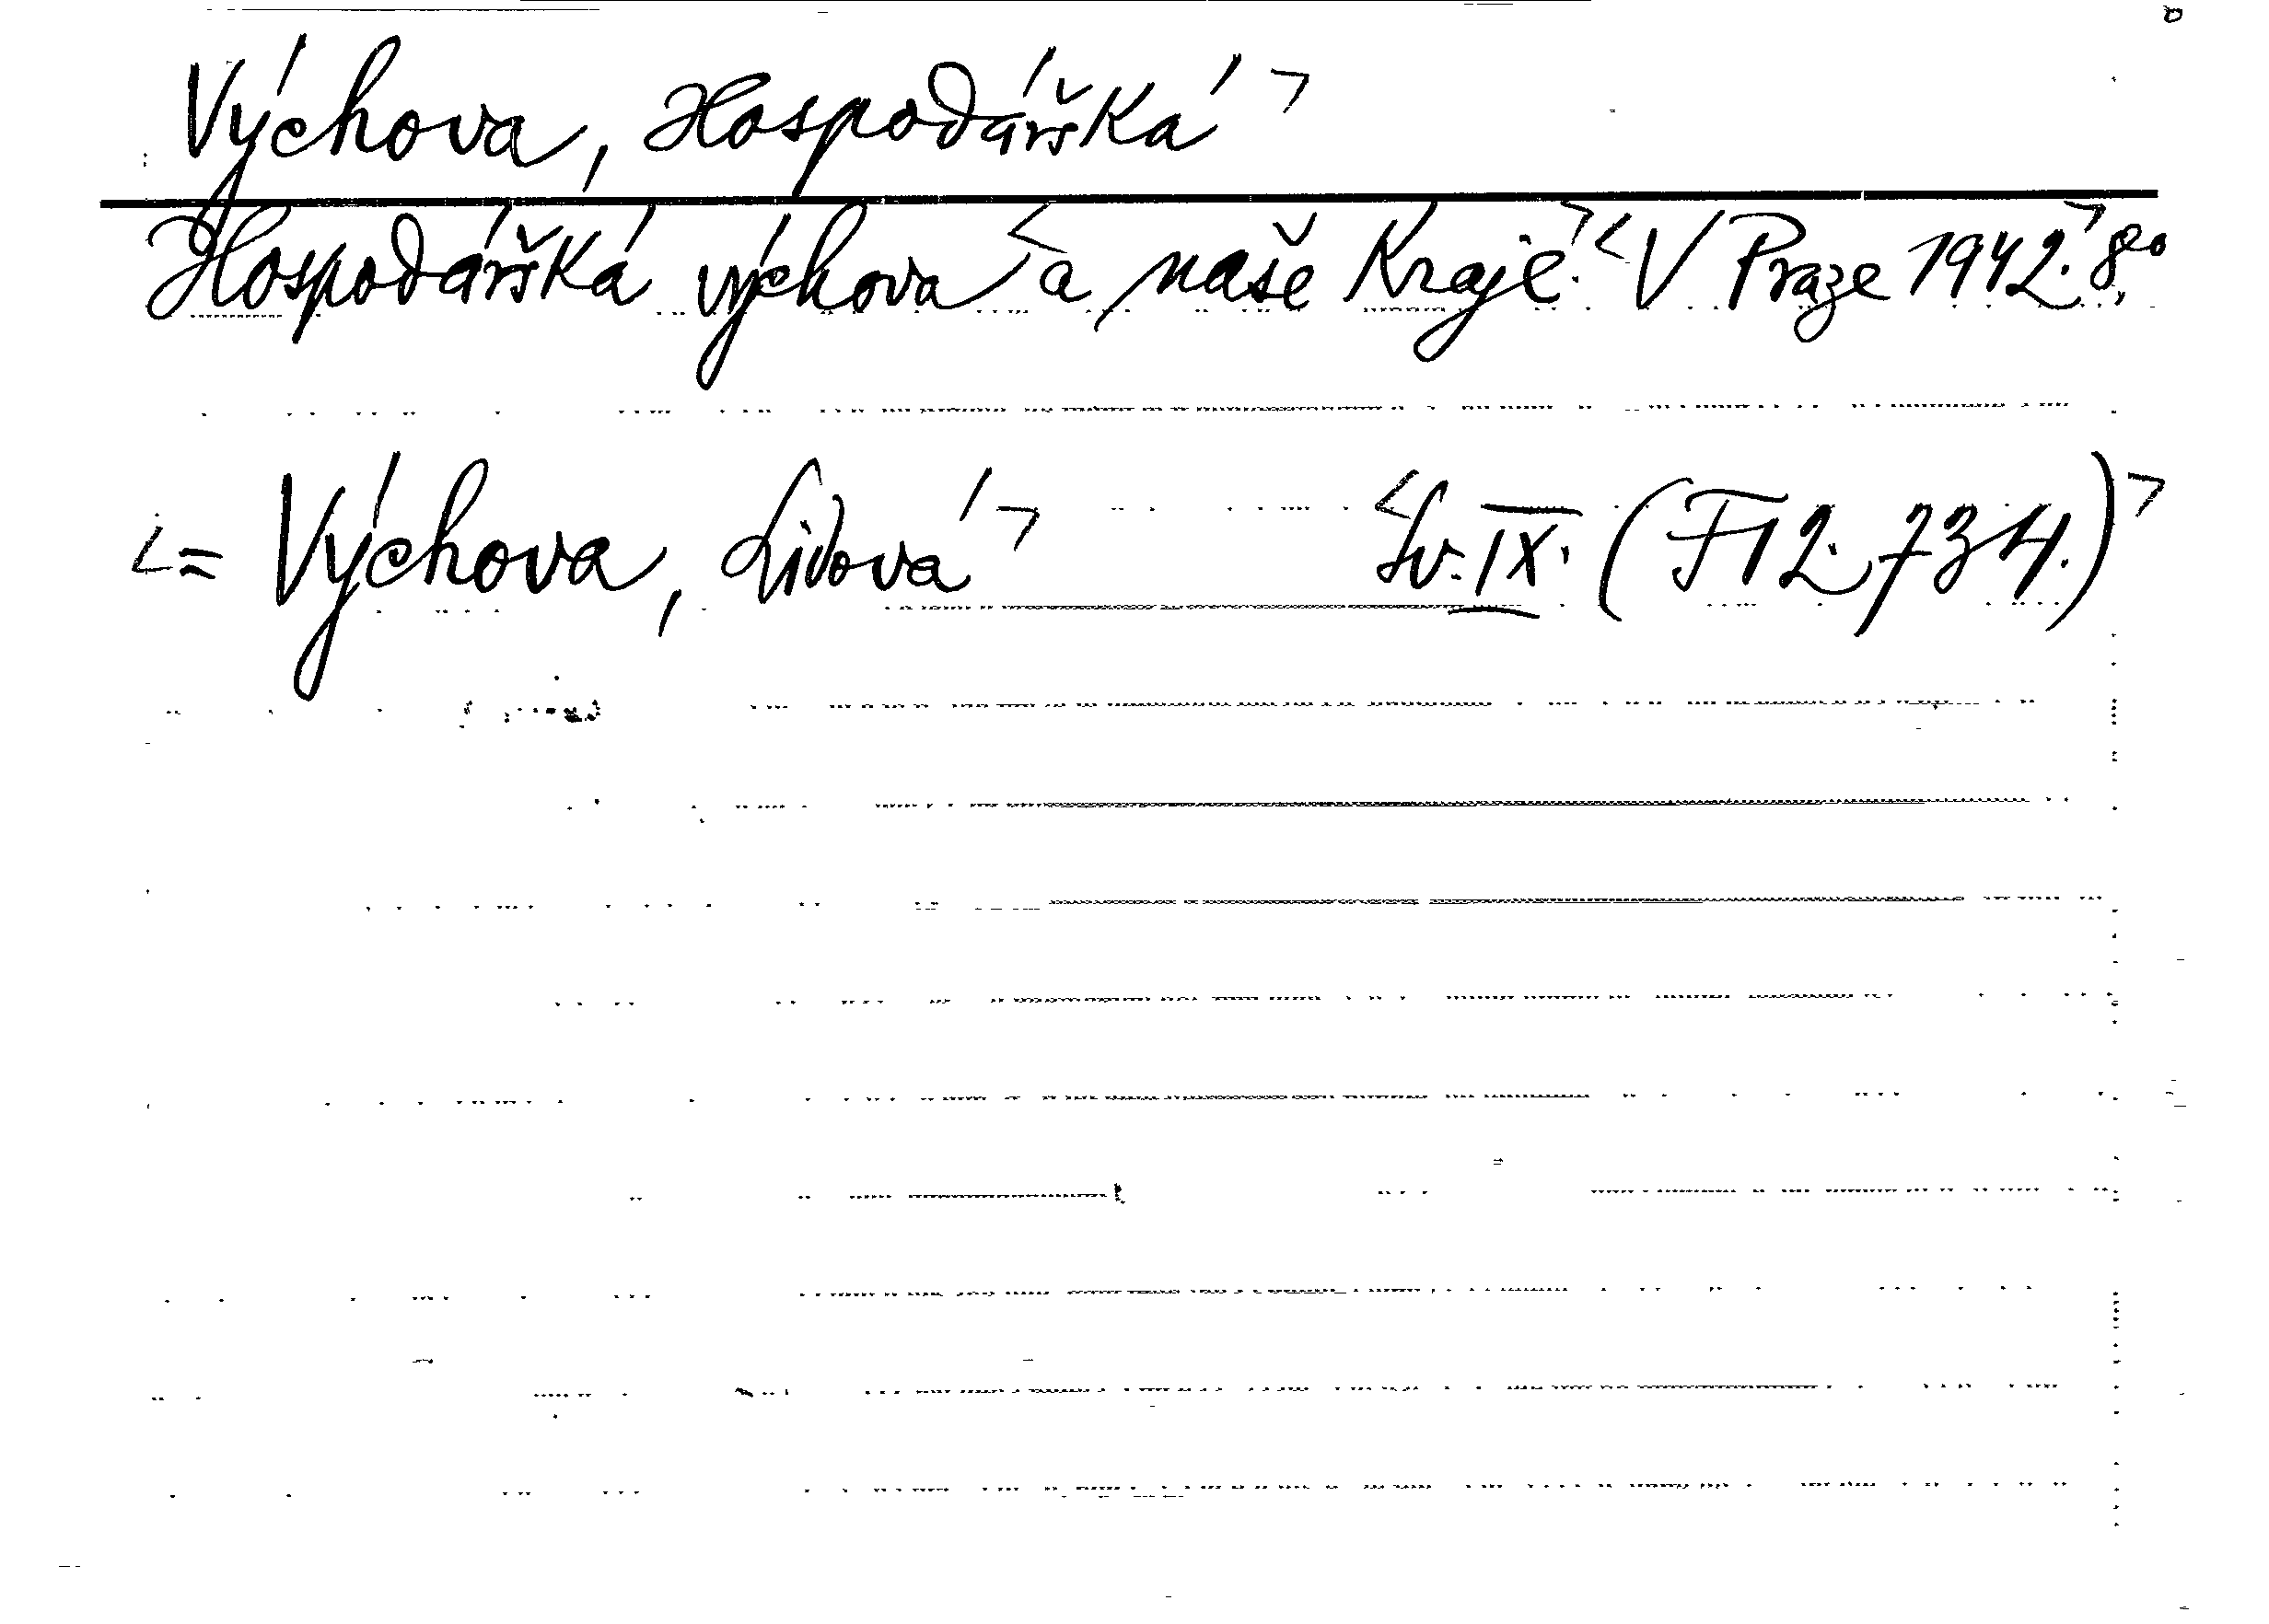 Výchova, Hospodářská ¬
Hospodářská výchova < a naše Kraje. ¬ < V Praze 1942. ¬ 8°.
< = Výchova, Lidová ¬ < Sv. IX. (F 12.734.) ¬